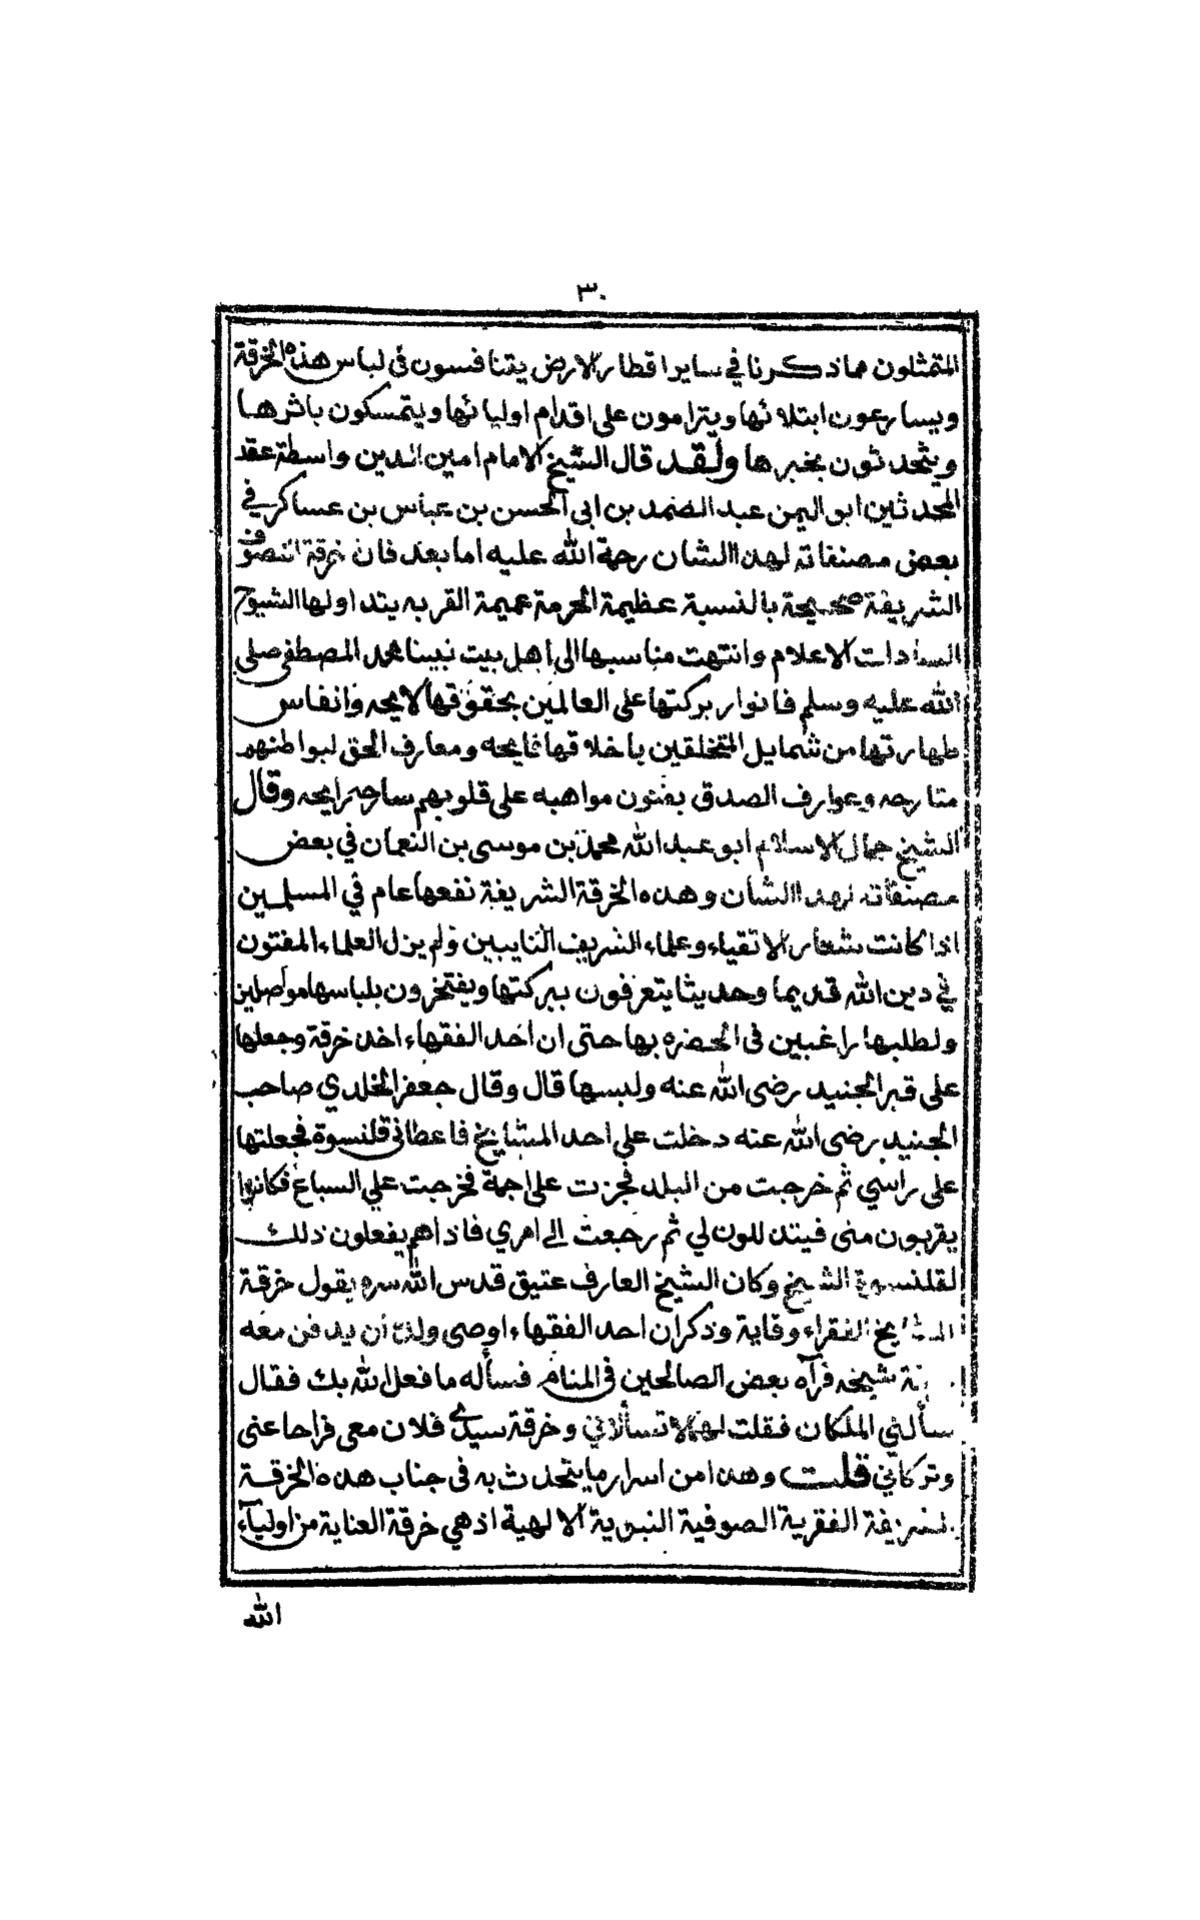 ٣٠
المتمثلون مما ذكرنا في ساير اقطار الارض يتنافسون في لباس هذه الخرقة
ويسارعون ابتلائها ويترامون على اقدام اوليائها ويتمسكون باثرها
ويتحدثون بخبرها ولقد قال الشيخ الامام امين الدين واسطة عقد
المحدثين ابو اليمن عبد الصمد بن ابي الحسن بن عباس بن عساكر في
بعض مصنفاته لهذا الشان رحمة الله عليه اما بعد فان خرقة التصوف
الشريفة صحيحة بالنسبة عظيمة الحرمة عميمة القربه يتداولها الشيوخ
السادات الاعلام وانتهت مناسبها الى اهل بيت نبينا محمد المصطفى صلى
الله عليه وسلم فانوار بركتها على العالمين بحقوقها لايحه وانفاس
طهارتها من شمايل المتخلقين باخلاقها فايحه ومعارف الحق لبواطنهم
وعوارف الصدق بفنون مواهبه على قلوبهم رايحه وقال
الشيخ جمال الاسلام ابو عبد الله محمد بن موسى بن النعمان في بعض
مصنفاته لهذا الشان وهذه الخرقة الشريفة نفعها عام في المسلمين
اذا كانت شعار الاتقياء وعلماء الشريف التايبين ولم يزل العلماء المفتون
في دين الله قديما وحديثا يتعرفون ببركتها ويفتخرون بلباسها مواصلين
ولطلبها راغبين في الحضره بها حتى ان احد الفقهاء اخذ خرقة وجعلها
على قبر الجنيد رضى الله عنه ولبسها قال وقال جعفر الخلدي صاحب
الجنيد رضى الله عنه دخلت على احد المشايخ فاعطانى قلنسوة فجعلتها
على راسي ثم خرجت من البلد فجزت على اجمة فخرجت علي السباع فكانوا
يقربون منى فيتذللون لي ثم رجعت الى امري فاذاهم يفعلون ذلك
لقلنسوة الشيخ وكان الشيخ العارف عتيق قدس الله سره يقول خرقة
المشايخ الفقراء وقاية وذكر ان احد الفقهاء اوصى ولده ان يدفن معه
شيخه فرآه بعض الصالحين في المنام فسأله ما فعل الله بك فقال
سألني الملكان فقلت لهما لا تسألاني وخرقة سيدي فلان معى فراحا عنى
وتركاني قلت وهذا من اسرار ما يتحدث به في جناب هذه الخرقة
الشريفة الفقرية الصوفية النبوية الالهية اذ هي خرقة العناية من اولياء
الله